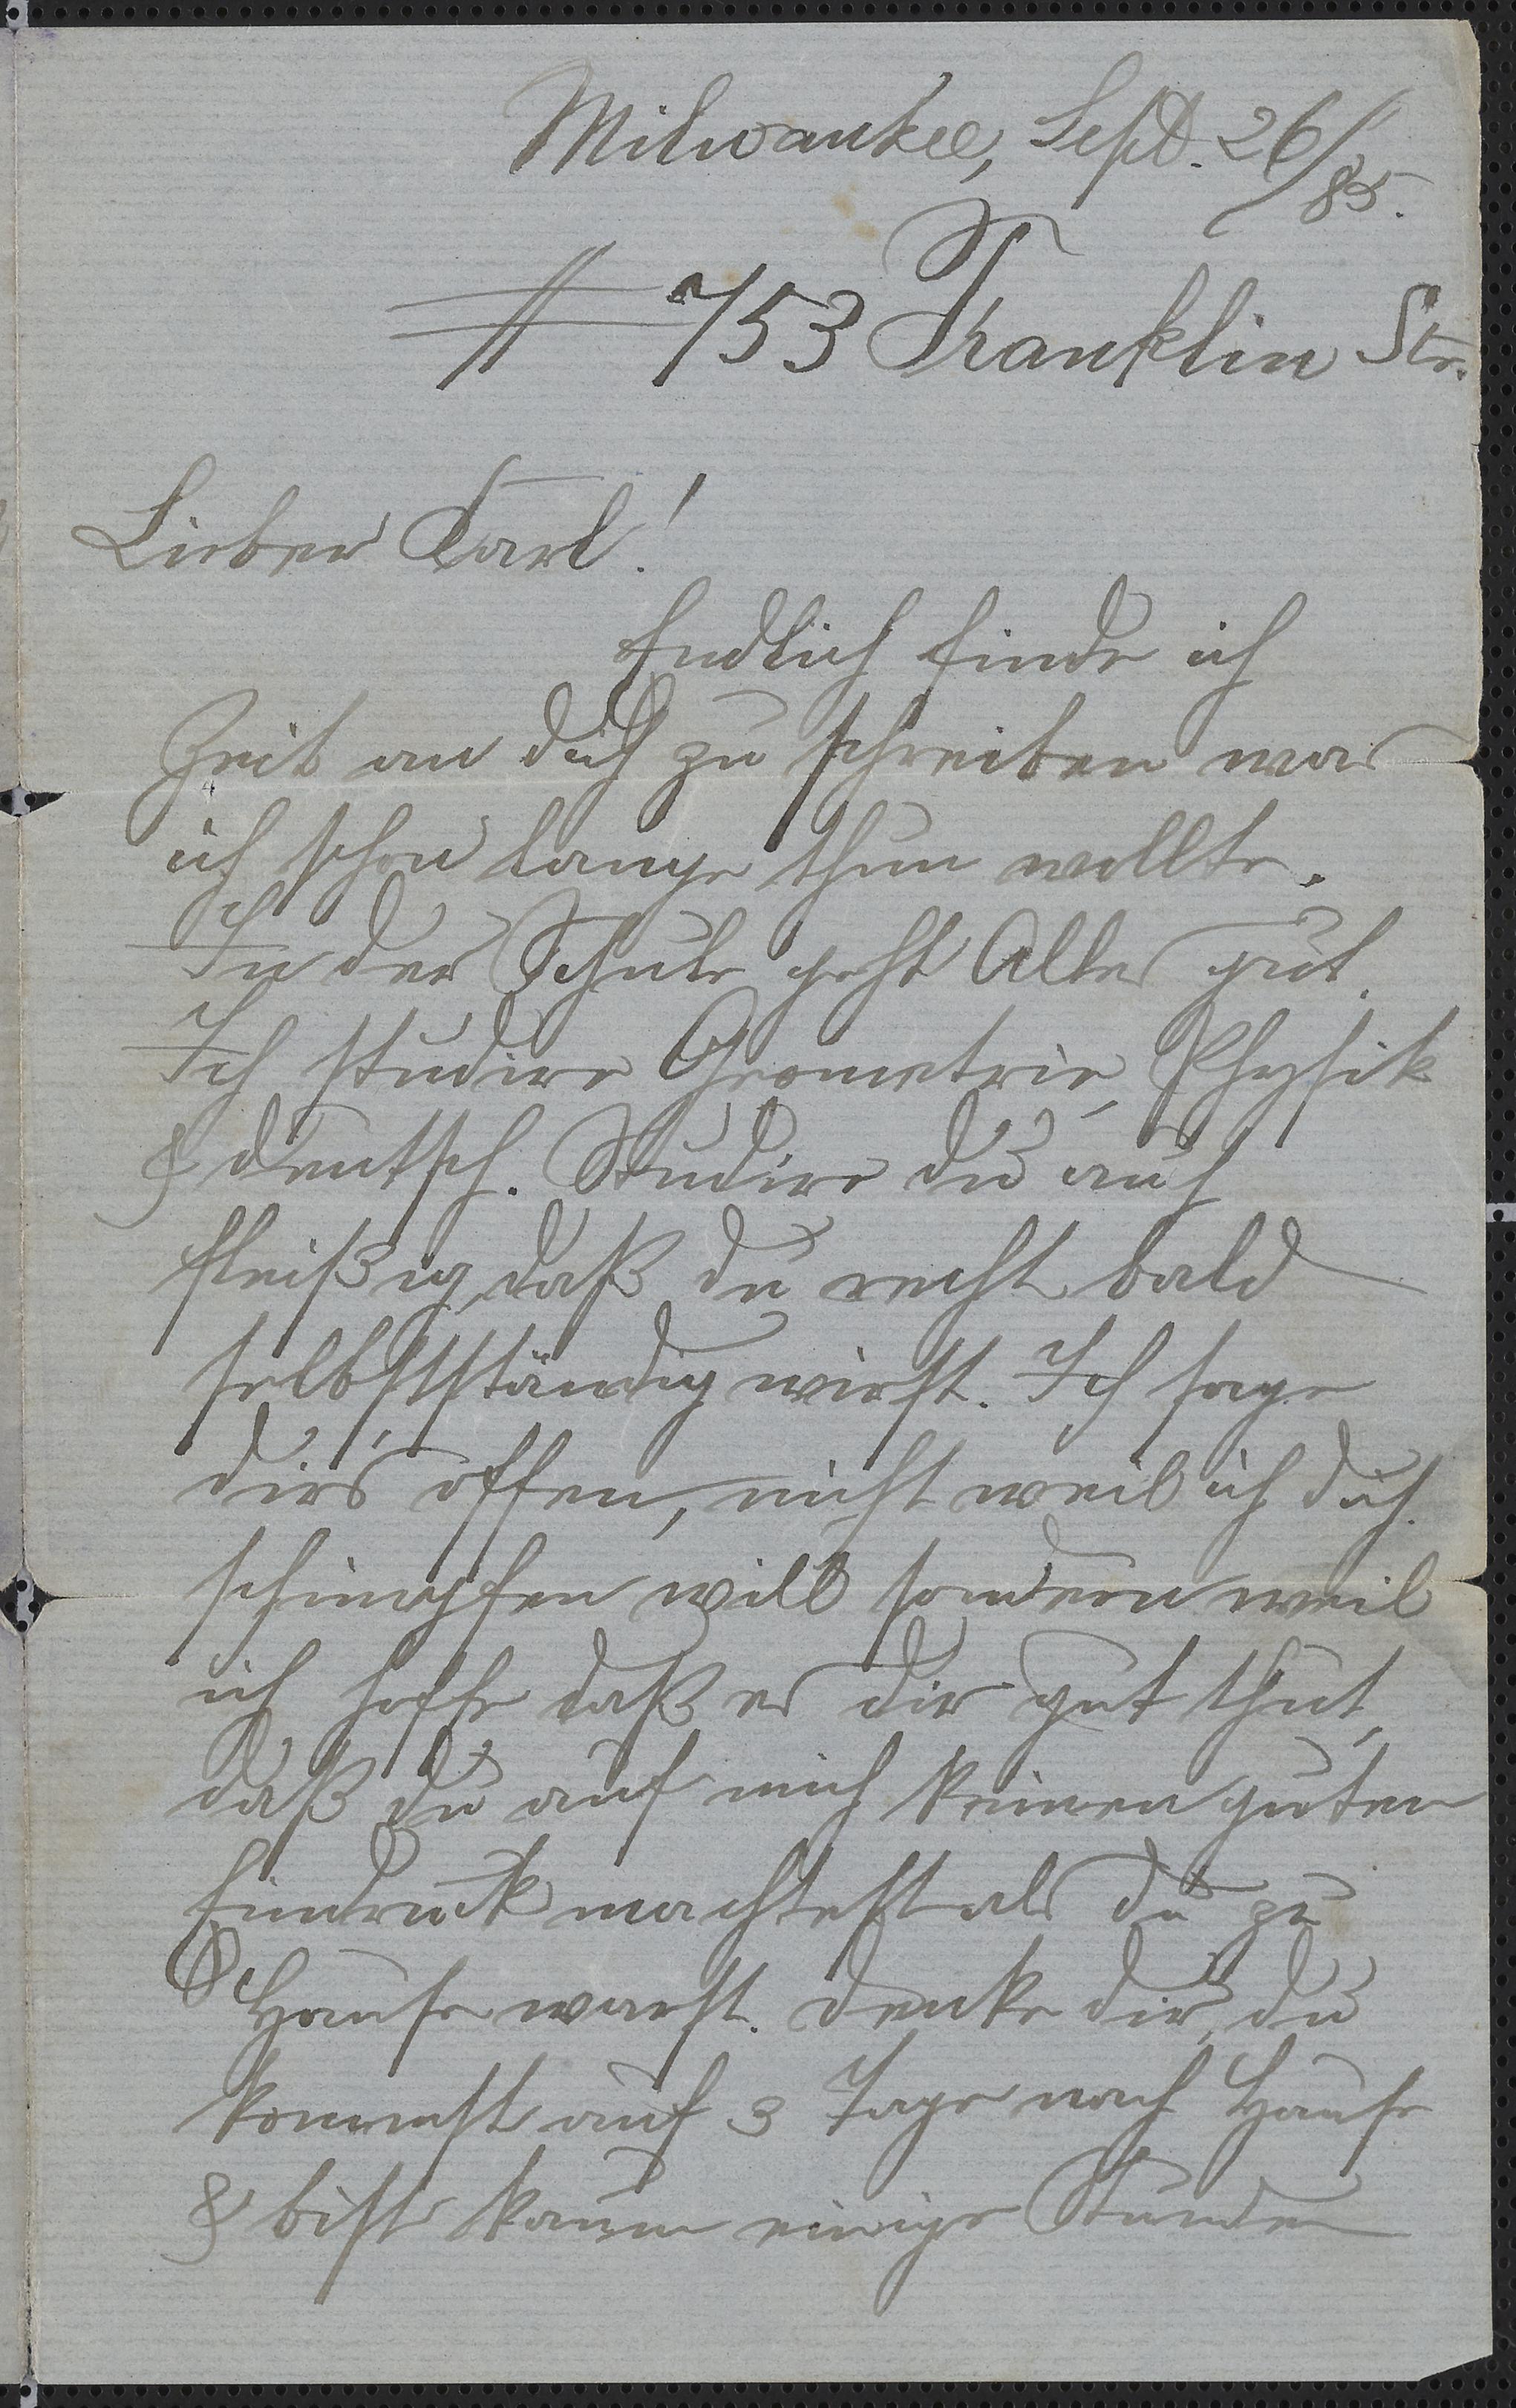 Milwaukee, Sept. 26/85.
# 753 Franklin Str.
Lieber Karl!
Endlich finde ich
Zeit an dich zu schreiben was
ich schon lange thun wollte.
In der Schule geht Alles gut.
Ich studire Geometrie, Physik
& deutsch. Studire du auch
fleißig, daß du recht bald
selbstständig wirst. Ich sage
dirs offen, nicht weil ich dich
schimpfen will sondern weil
ich hoffe daß es dir gut thut,
daß du auf mich keinen guten
Eindruck machtest als du zu
Hause warst. Denke dir, du
kommst auf 3 Tage nach Hause
& bist kaum einige Stunden